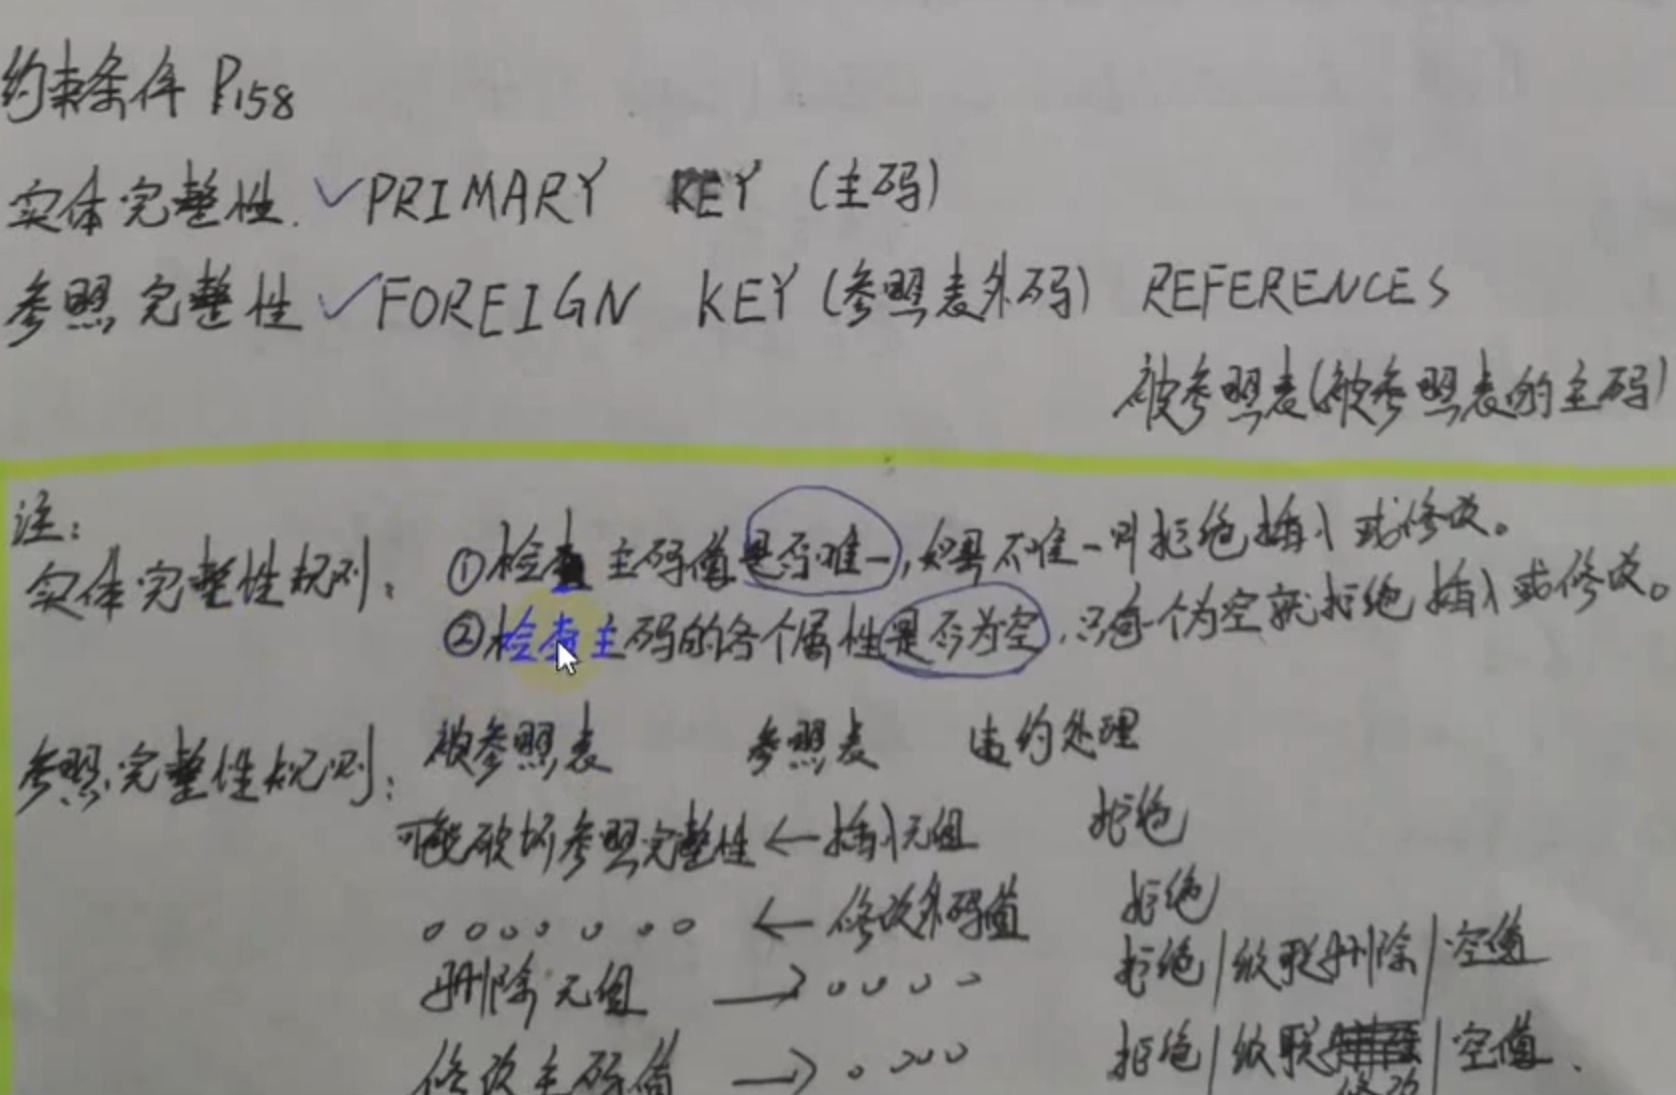 约束条件 P158
实体完整性. ✓PRIMARY KEY (主码)
参照完整性 ✓FOREIGN KEY (参照表外码) REFERENCES
被参照表(被参照表的主码)
注:
实体完整性规则: ①检查主码值是否唯一,如果不唯一则拒绝插入或修改。
②检查主码的各个属性是否为空,只有一个为空就拒绝插入或修改。
参照完整性规则: 被参照表 参照表 违约处理
可能破坏参照完整性 ← 插入元组 拒绝
。。。。。。。 ← 修改外码值 拒绝
删除元组 → 。。。。 拒绝|级联删除|空值
修改主码值 → 。。。。 拒绝|级联修改|空值.